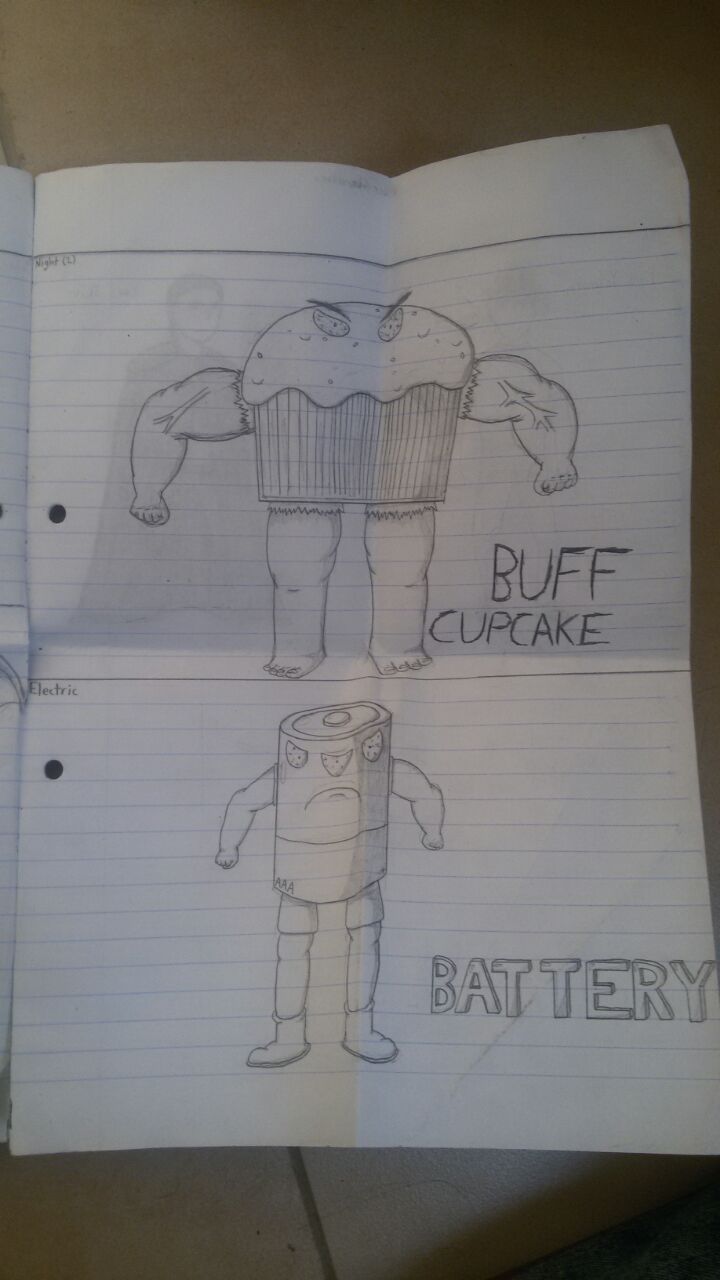 Night (2)
BUFF
CUPCAKE
Electric
AAA
BATTERY